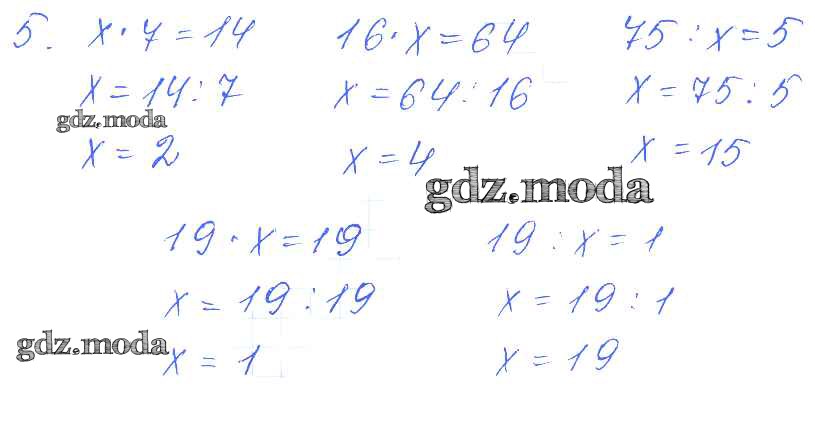 5. x · 7 = 14 16 · x = 64 75 : x = 5
x = 14 : 7 x = 64 : 16 x = 75 : 5
gdz.moda
x = 2 x = 4 x = 15
gdz.moda
19 · x = 19 19 : x = 1
x = 19 : 19 x = 19 : 1
gdz.moda
x = 1 x = 19